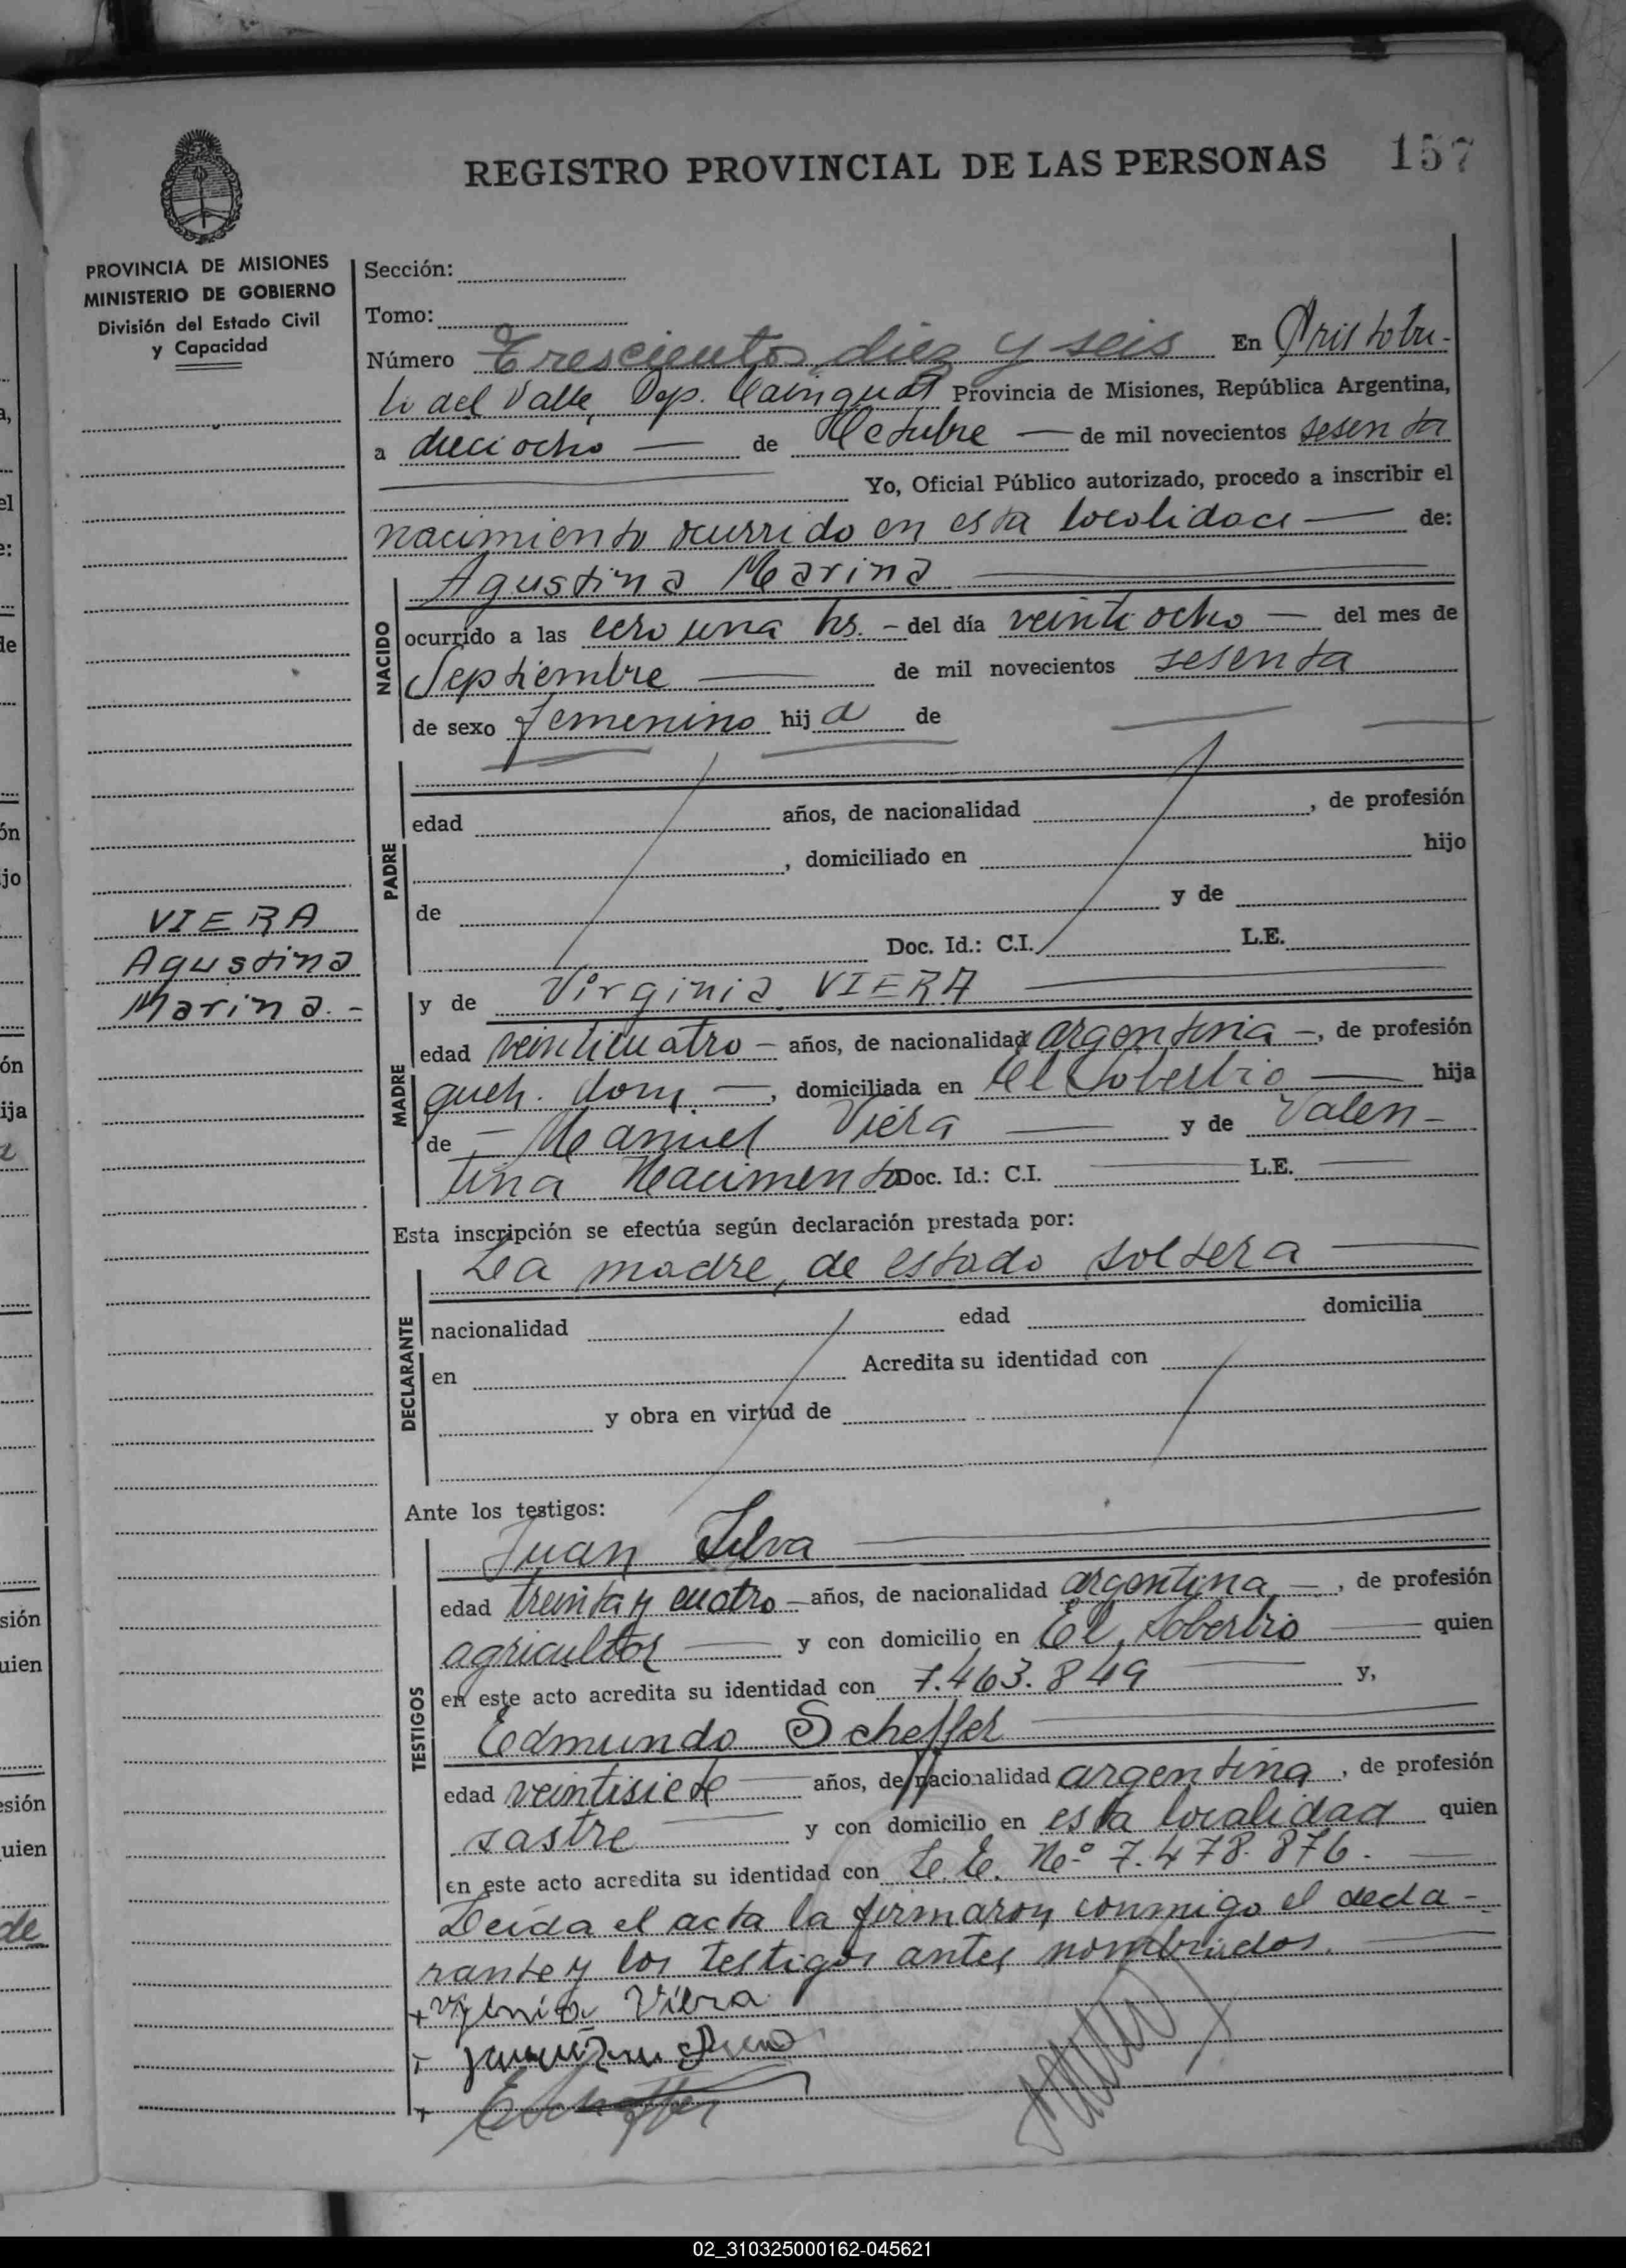 REGISTRO PROVINCIAL DE LAS PERSONAS 157
PROVINCIA DE MISIONES
MINISTERIO DE GOBIERNO
División del Estado Civil
y Capacidad
Sección:
Tomo:
Número Trescientos diez y seis En Aristobu-
lo del Valle, Dep. Cainguás Provincia de Misiones, República Argentina,
a dieciocho — de Octubre — de mil novecientos sesenta
Yo, Oficial Público autorizado, procedo a inscribir el
nacimiento ocurrido en esta localidad — de:
NACIDO
Agustina Marina
ocurrido a las cero una hs. - del día veintiocho — del mes de
Septiembre — de mil novecientos sesenta
de sexo femenino hija de
PADRE
edad años, de nacionalidad , de profesión
, domiciliado en hijo
de y de
Doc. Id.: C.I. L.E.
VIERA
Agustina
Marina. -
MADRE
y de Virginia VIERA
edad veinticuatro - años, de nacionalidad argentina -, de profesión
queh. dom. —, domiciliada en El Soberbio — hija
de - Manuel Viera — y de Valen-
tina Nacimento Doc. Id.: C.I. — L.E. —
Esta inscripción se efectúa según declaración prestada por:
DECLARANTE
La madre, de estado soltera —
nacionalidad edad domicilia
en Acredita su identidad con
y obra en virtud de
Ante los testigos:
TESTIGOS
Juan Silva
edad treinta y cuatro - años, de nacionalidad argentina -, de profesión
agricultor — y con domicilio en El Soberbio — quien
en este acto acredita su identidad con 7.463.849 — y,
Edmundo Scheffer
edad veintisiete — años, de nacionalidad argentina , de profesión
sastre — y con domicilio en esta localidad quien
en este acto acredita su identidad con L. E. Nº 7.478.876. —
Leída el acta la firmaron conmigo el decla-
rante y los testigos antes nombrados. —
+ Viera
+
+ EScheffer
02_310325000162-045621